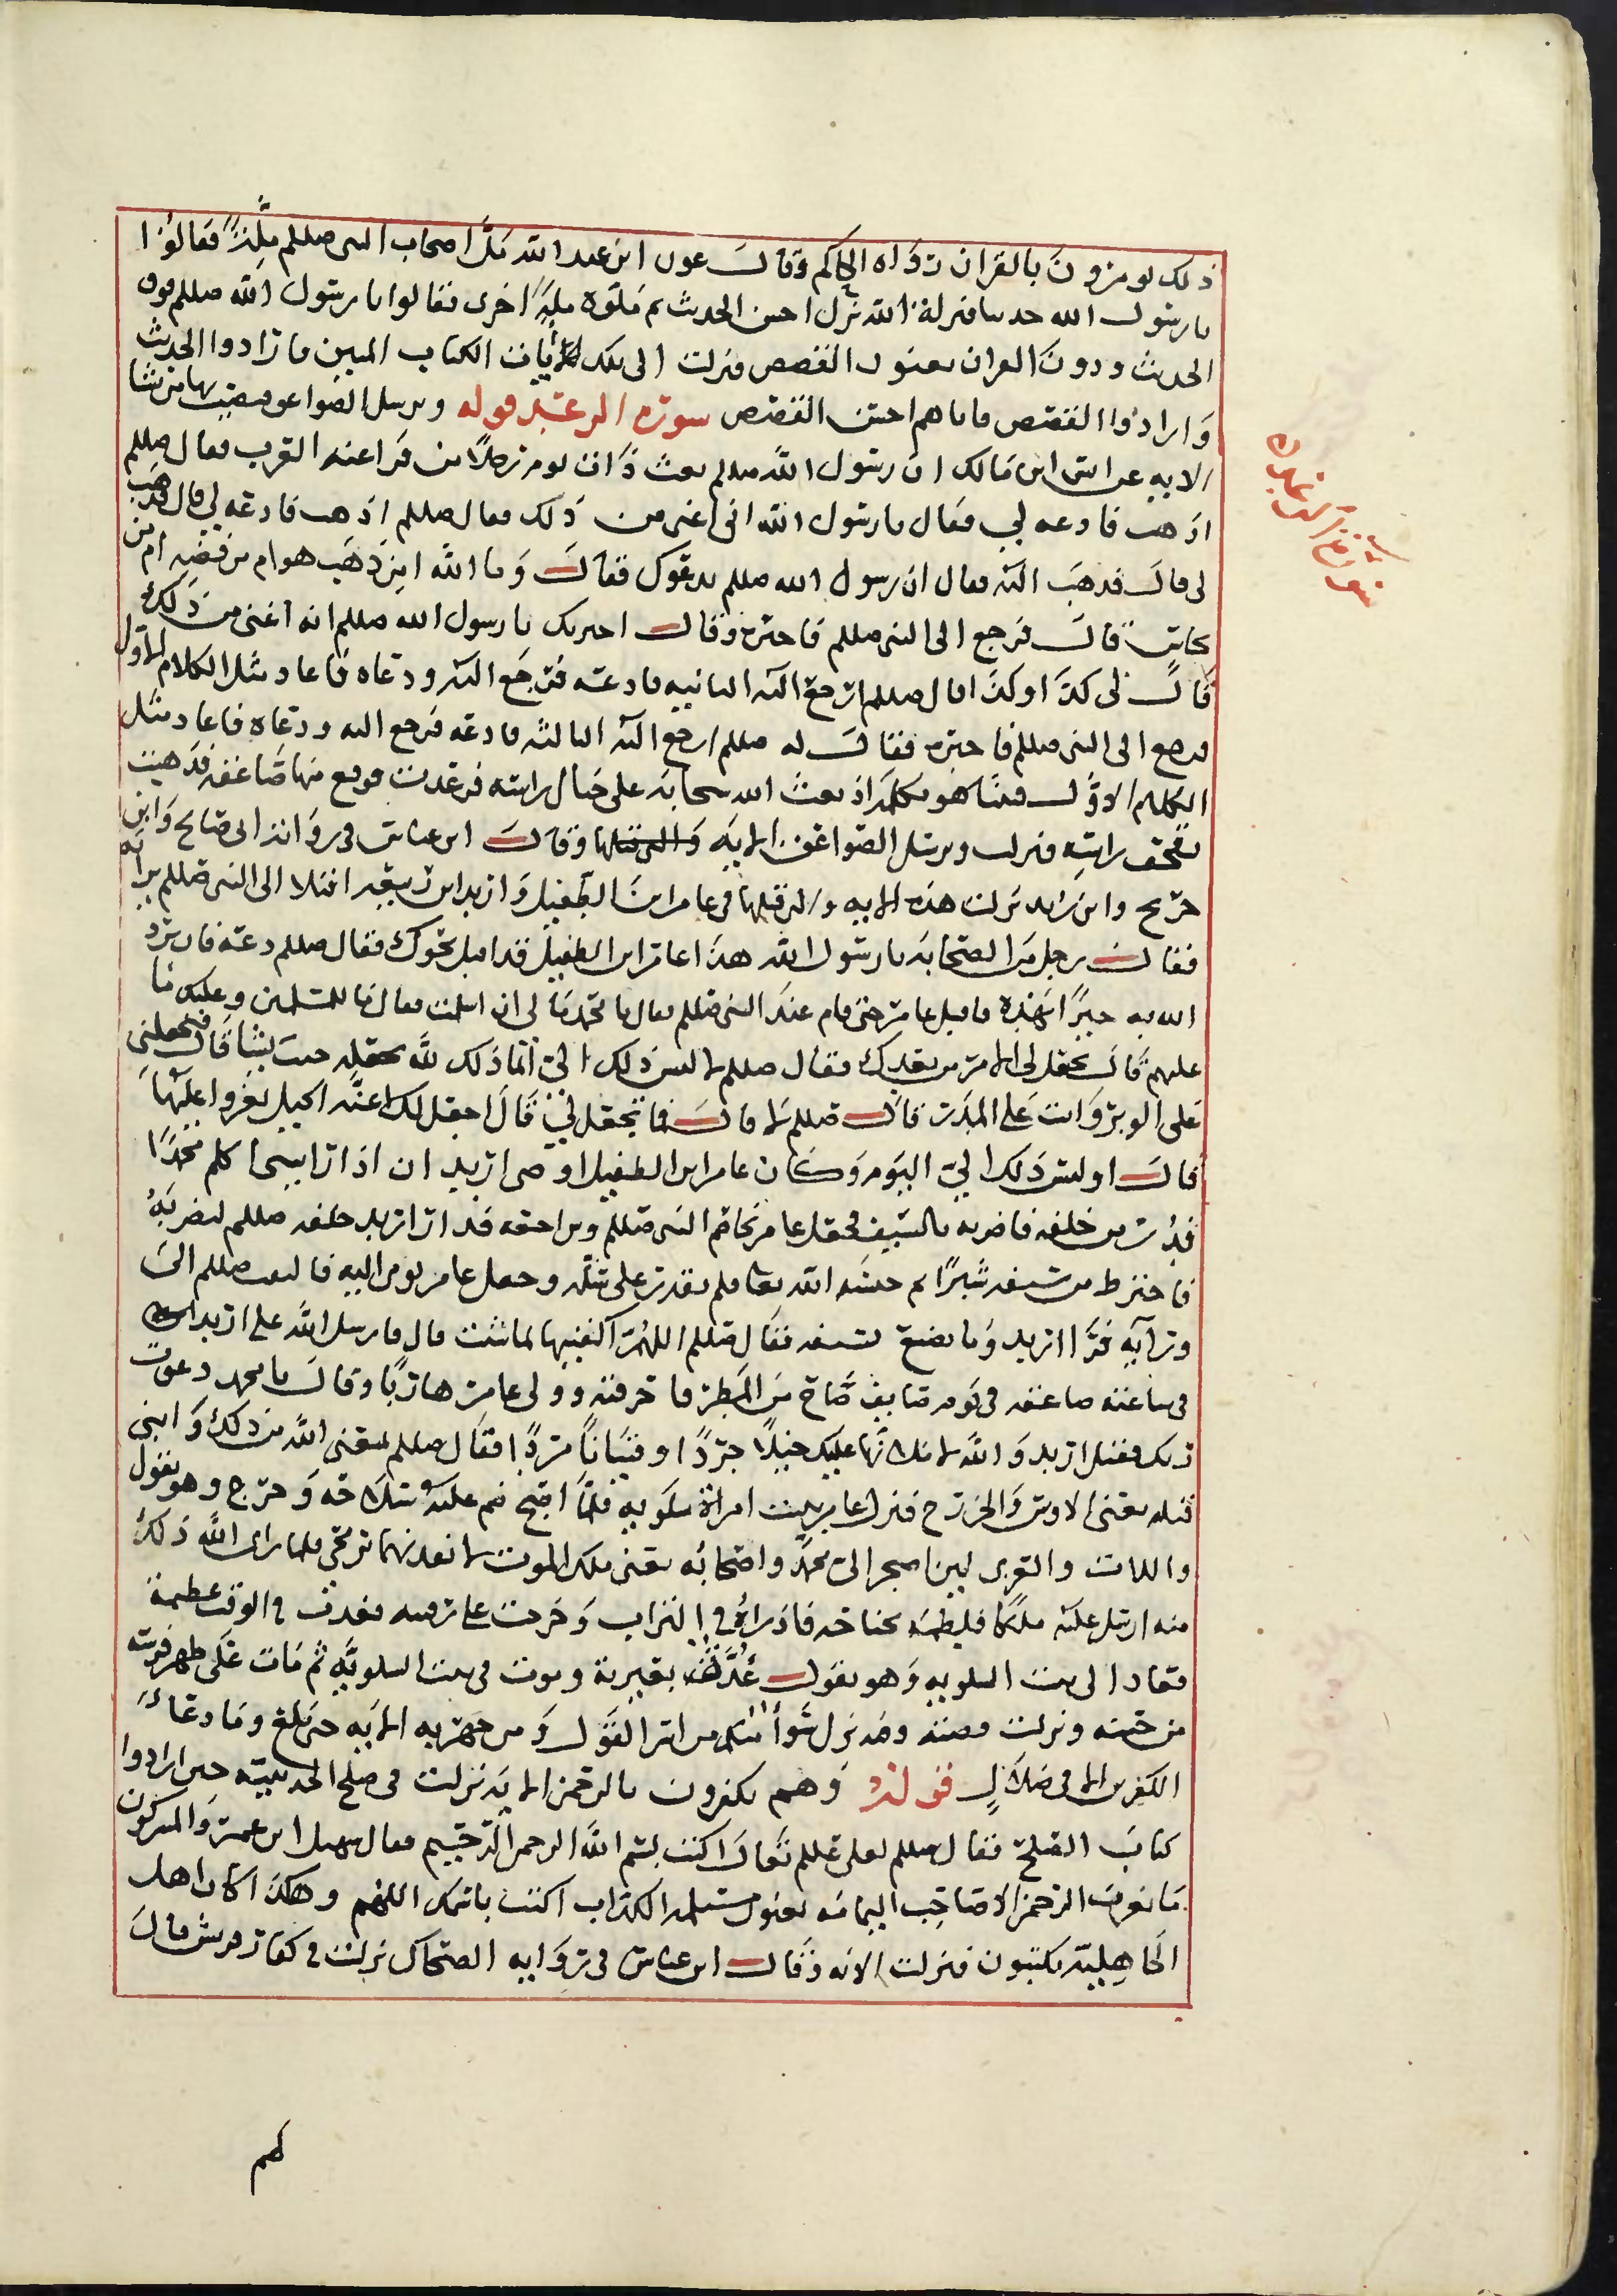 ذلك يومرون بالقران رواه الحاكم وقالـــ عون ابن عبد الله ملّ اصحاب النبي صللم ملّةً فقالوا
يا رسولـــ الله حدثنا فنزلة الله نزل احسن الحديث ثم ملوه ملةً اخرى فقالوا يا رسول الله صللم فوق
الحديث ودون القران يعنون القصص فنزلت الى تلك ايات الكتاب المبين فارادوا الحديث
وارادوا القصص فاتاهم احسن القصص سوره الرعد قوله ويرسل الصواعق فيصيب بها من يشا
الايه عن انس ابن مالك ان رسول الله صللم بعث ذات يوم رجلا من فراعنه العرب فقال صللم
اذهب فادعه لي فقال يا رسول الله انه اعتى من ذلك فقال صللم اذهب فادعه لي قال فذهب
لي قالـ فذهب اليه فقال ان رسول الله صللم يدعوك فقالـــ وما الله امن ذهب هو ام من فضه ام من
نحاس قالـ فرجع الى النبي صللم فاخبره وقالـــ اخبرتك يا رسول الله صللم انه اعتى من ذلك
قالـ لي كذا وكذا قال صللم ارجع اليه الثانيه فادعه فرجع اليه ودعاه فاعاد مثل الكلام الاول
فرجع الى النبي صللم فاخبره فقالـــ له صللم ارجع اليه الثالثه فادعه فرجع اليه ودعاه فاعاد مثل
الكلام الاولـ فبينا هو يكلمه اذ بعث الله سحابة على حيال راسه فرعدت فوقع منها صاعقه فذهبت
بقحف راسه فنزلت ويرسل الصواعق الايه وقالـــ ابن عباس في رواية ابي صالح وابن
جريج وابن زيد نزلت هذه الايه والتي قبلها في عامر ابن الطفيل واربد ابن ربيعه اقبلا الى النبي صللم يريدانه
فقالـــ رجل من الصحابه يا رسول الله هذا عامر ابن الطفيل قد اقبل نحوك فقال صللم دعه فان يرد
الله به خيرا يهده فاقبل عامر حتى قام عند النبي صللم فقال يا محمد ما لي ان اسلمت فقال ما للمسلمين وعليك ما
عليهم قالـ تجعل لي الامر من بعدك فقال صللم لا ليس ذلك الي انما ذلك لله يجعله حيث يشا قال فتجعلني
على الوبر وانت على المدر قالـــ صللم لا قالـــ فما تجعل لي قال اجعل لك اعنه الخيل تغزوا عليها
قالـــ اوليس ذلك الي اليوم وكان عامر ابن الطفيل اوصى اربد ان اذا رايتني اكلم محمدا
فدر من خلفه فاضربه بالسيف فجعل عامر يخاصم النبي صللم ويراجعه فدار اربد خلفه صللم ليضربه
فاخترط من سيفه شبرا ثم حبسه الله تعا فلم يقدر على سله وجعل عامر يومي اليه فالتفت صللم الى
ورايه فرا اربد وما يصنع بسيفه فقال صللم اللهم اكفنيهما بما شئت قال فارسل الله على اربد
في ساعته صاعقه في يوم صايف صاح من المطر فاحرقته وولى عامر هاربا وقالـ يا محمد دعوت
ربك فقتل اربد والله لاملانها عليك خيلا جردا وفتيانا مردا فقال صللم يمنعني الله من ذلك وابني
قيله يعني الاوس والخزرج فنزل عامر بيت امراة سلوليه فلما اصبح ضم عليه سلاحه وخرج وهو يقول
واللات والعزى لين اصحر الي محمد واصحابه يعني ملك الموت لانفذنهما برمحي فلما راى الله ذلك
منه ارسل عليه ملكا فلطمه بجناحه فاذراه في التراب وخرجت على ركبته غده في الوقت عظيمة
فعاد الى بيت السلوليه وهو يقولـــ غدة بعيرية وموت في بيت السلوليه ثم مات على ظهر فرسه
من حينه ونزلت قصته وقد نزل سوا منكم من اسر القول ومن جهر به الايه حتى بلغ وما دعا
الكفرين الا في ضلال قوله وهم يكفرون بالرحمن الاية نزلت في صلح الحديبيه حين ارادوا
كتاب الصلح فقال صللم لعلي عللم تعال اكتب بسم الله الرحمن الرحيم فقال سهيل ابن عمر والمشركون
ما نعرف الرحمن الا صاحب اليمامه يعنون مسيلمه الكذاب اكتب باسمك اللهم وهكذا كان اهل
الجاهليه يكتبون فنزلت الايه وقالـــ ابن عباس في رواية الضحاك نزلت في كفار قريش قال
لهم